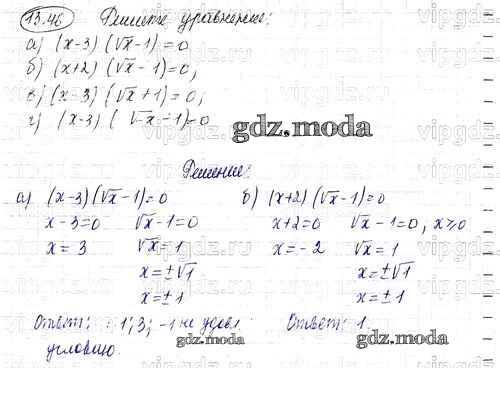 13.46 Решите уравнения:
а) (x-3)(√x-1)=0
б) (x+2)(√x-1)=0;
в) (x-3)(√x+1)=0;
г) (x-3)(√-x-1)=0
gdz.moda
Решение:
а) (x-3)(√x-1)=0
x-3=0 √x-1=0
x=3 √x=1
x=±√1
x=±1
Ответ: 1; 3; -1 не удовл.
условию.
gdz.moda
б) (x+2)(√x-1)=0
x+2=0 √x-1=0, x≥0
x=-2 √x=1
x=±√1
x=±1
Ответ: 1.
gdz.moda